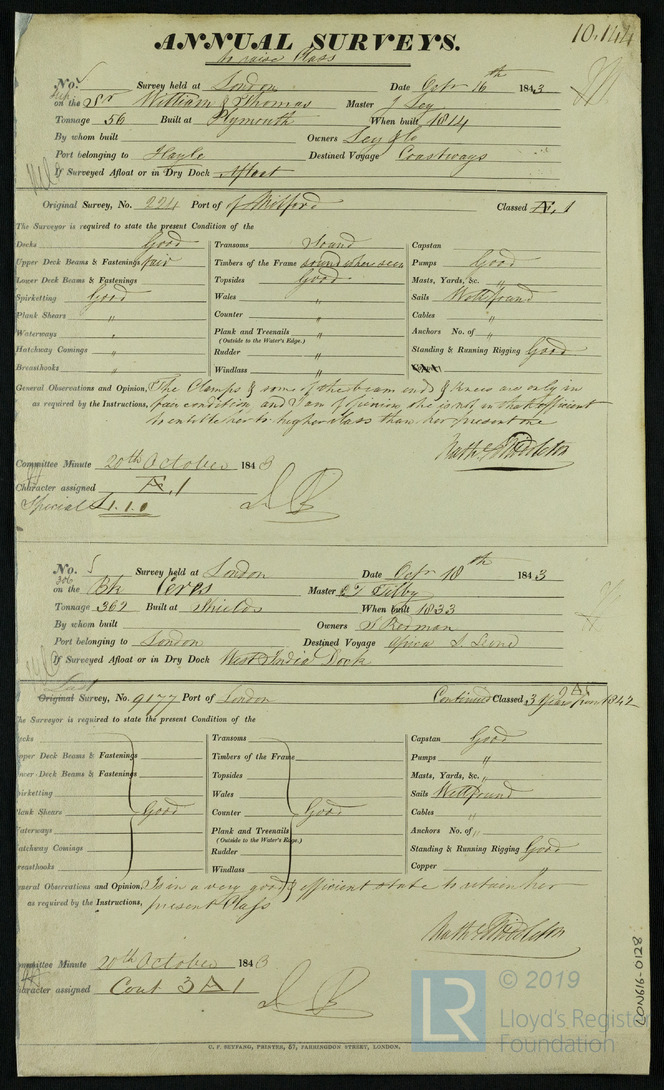 10.144
ANNUAL SURVEYS.
to raise Class
No. 5 Survey held at London Date Octr 16th 1843
on the Sr William & Thomas Master J Ley
Tonnage 56 Built at Plymouth When built 1814
By whom built Owners Ley & Co
Port belonging to Hayle Destined Voyage Coastways
If Surveyed Afloat or in Dry Dock Afloat
Original Survey, No. 224 Port of Milford Classed Æ.1
The Surveyor is required to state the present Condition of the
Decks Good
Upper Deck Beams & Fastenings fair
Lower Deck Beams & Fastenings
Spirketting Good
Plank Shears "
Waterways "
Hatchway Comings "
Breasthooks "
Transoms Sound
Timbers of the Frame sound where seen
Topsides Good
Wales "
Counter "
Plank and Treenails "
(Outside to the Water's Edge.)
Rudder "
Windlass "
Capstan
Pumps Good
Masts, Yards, &c. "
Sails Well found
Cables "
Anchors No. of "
Standing & Running Rigging Good
General Observations and Opinion, The Clamps & some of the beam ends & knees are only in
as required by the Instructions, fair condition and I am of opinion she is not in that efficient
to entitle her to higher class than her present one
Nathl Middleton
Committee Minute 20th October 1843
Character assigned Æ.1
Special £1.1.0
No. 5 Survey held at London Date Octr 18th 1843
306
on the Bk Ceres Master Tilby
Tonnage 367 Built at Shields When built 1833
By whom built Owners
Port belonging to London Destined Voyage Africa S. Leone
If Surveyed Afloat or in Dry Dock West India Dock
Last
Original Survey, No. 9177 Port of London Continued Classed 3 Years from 1842
The Surveyor is required to state the present Condition of the
Decks
Upper Deck Beams & Fastenings
Lower Deck Beams & Fastenings
Spirketting
Plank Shears Good
Waterways
Hatchway Comings
Breasthooks
Transoms
Timbers of the Frame
Topsides
Wales
Counter Good
Plank and Treenails
(Outside to the Water's Edge.)
Rudder
Windlass
Capstan Good
Pumps "
Masts, Yards, &c. "
Sails Well found
Cables "
Anchors No. of "
Standing & Running Rigging Good
Copper "
General Observations and Opinion, Is in a very good & efficient state to retain her
as required by the Instructions, present Class
Nathl Middleton
Committee Minute 20th October 1843
Character assigned Cont 3 A 1
C. F. SEYFANG, PRINTER, 57, FARRINGDON STREET, LONDON.
LON616-0128
LR
© 2019
Lloyd's Register
Foundation